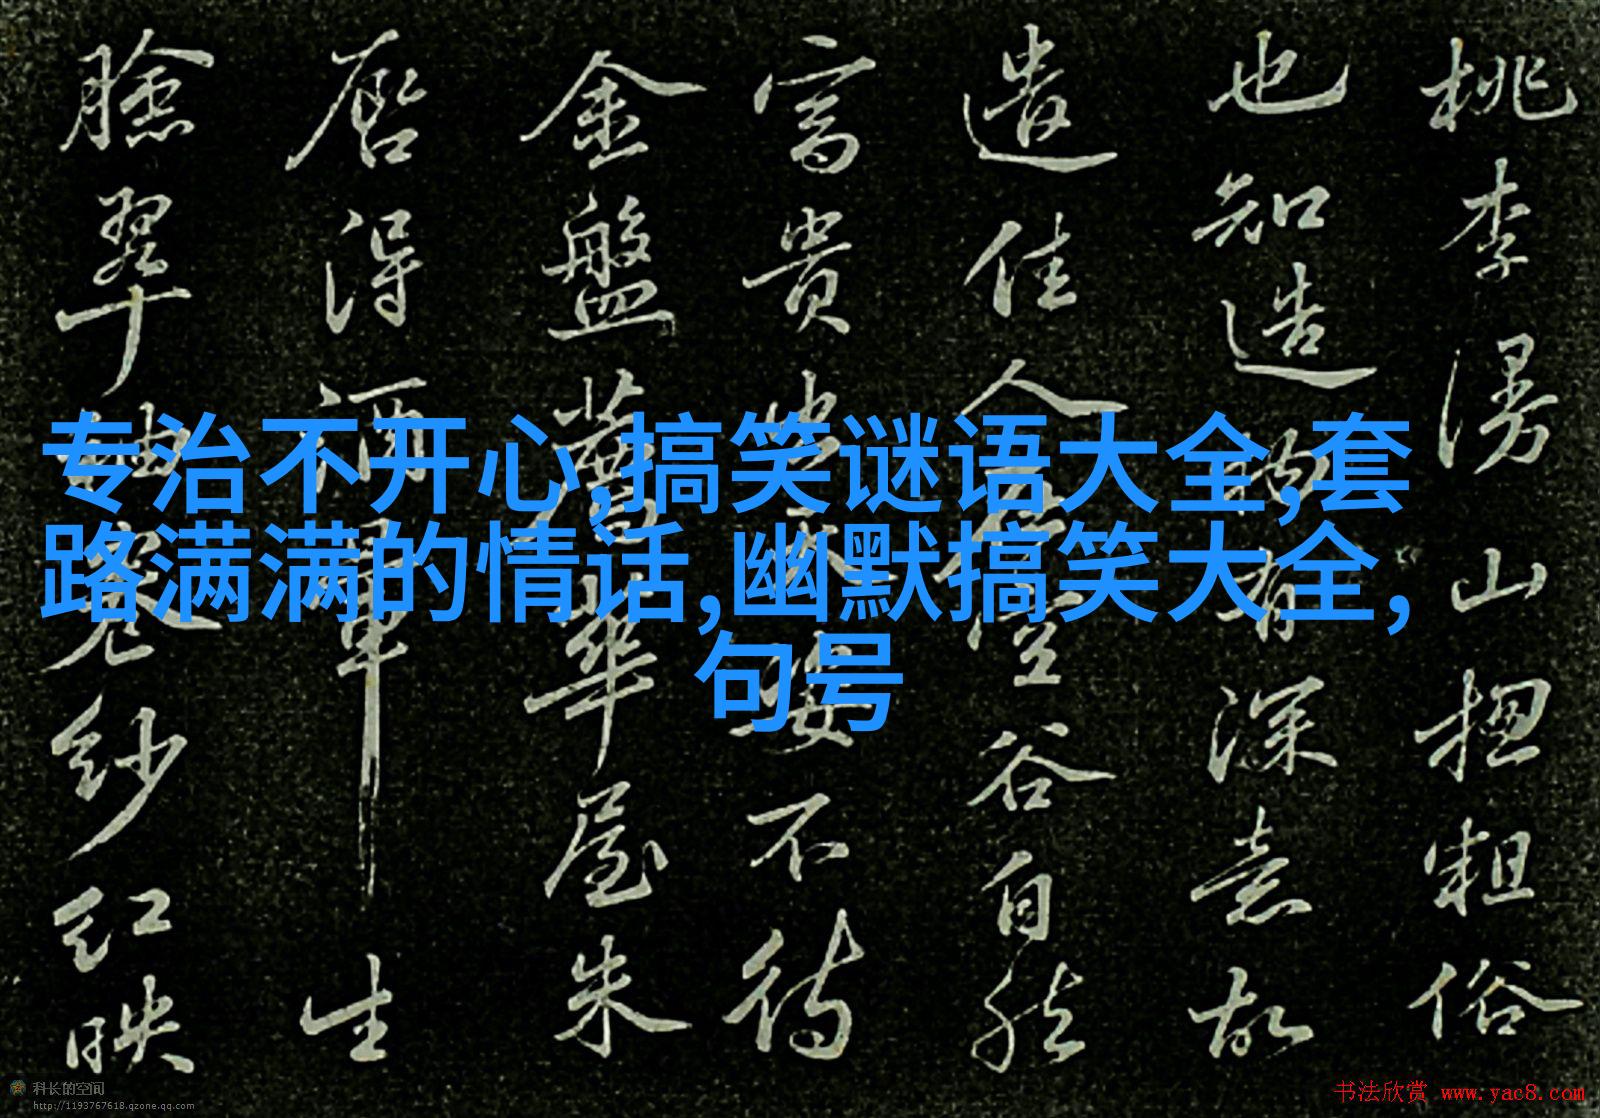 桃李漫山揔粗俗
也知造物有深意故
遣佳人在空谷自然
富貴出天姿不待
金盤薦華屋朱
唇得酒暈生
臉翠袖卷紗紅映
专治不开心,搞笑谜语大全,套
路满满的情话,幽默搞笑大全,
句号
科长的空间
http://1193767618.qzone.qq.com
书法欣赏 www.yac8.com